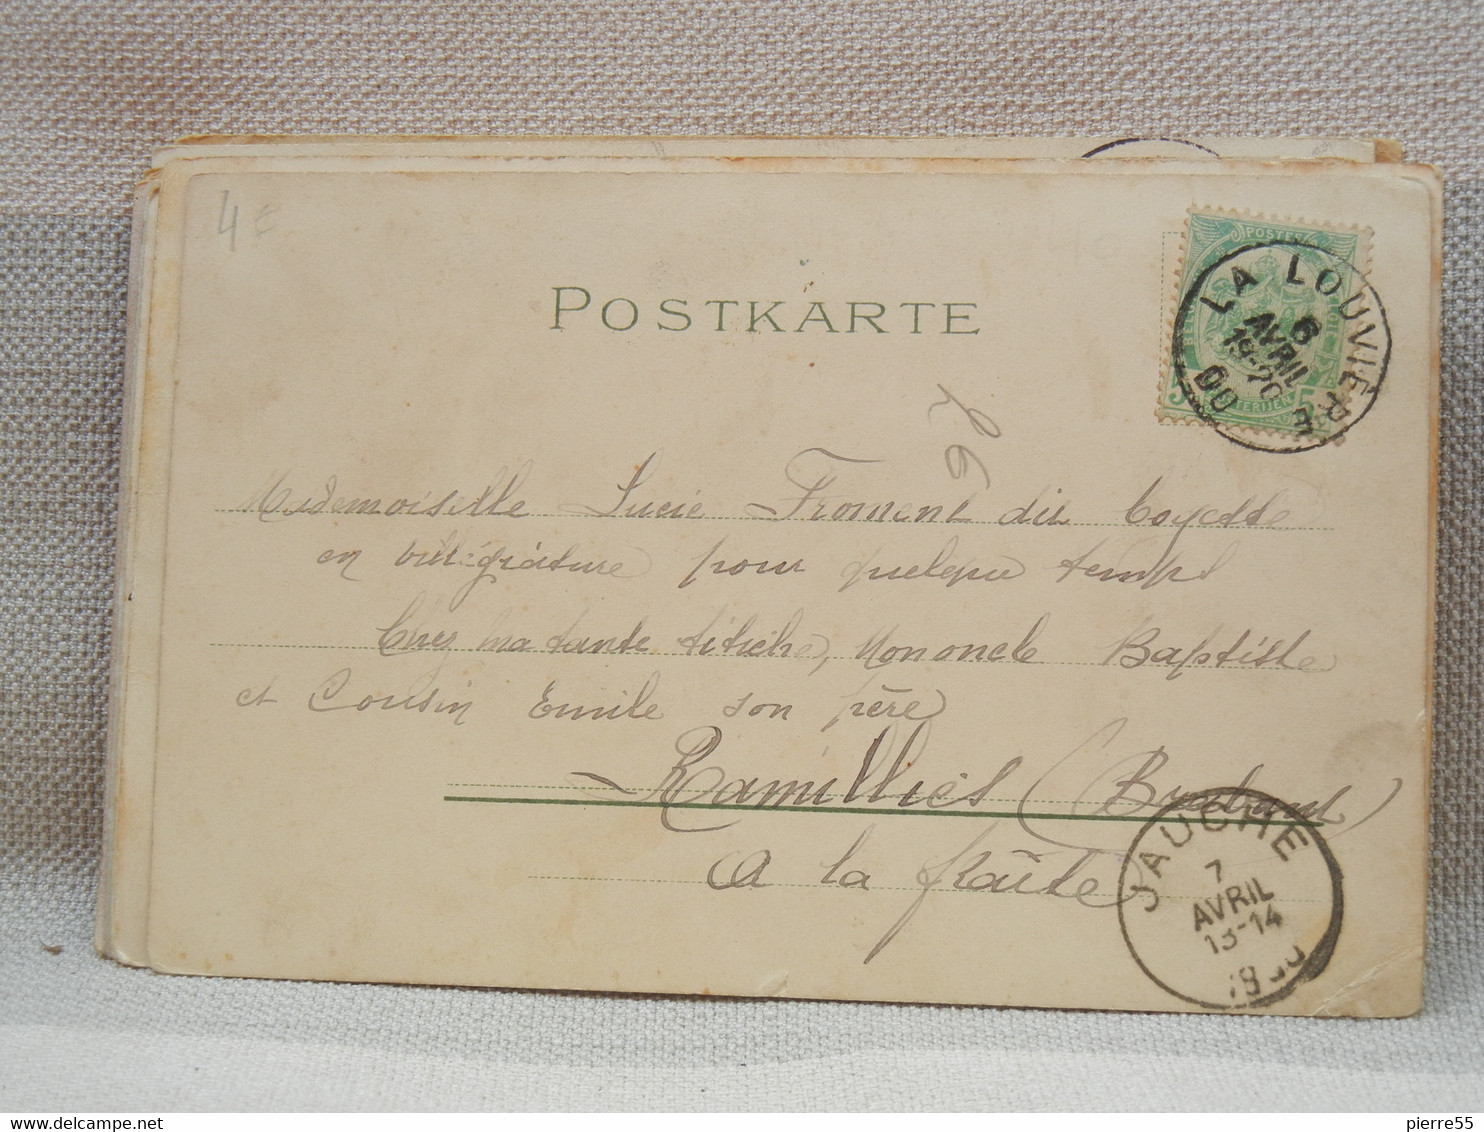 4€
POSTES
5 5
LA LOUVIÈRE
6
AVRIL
19-20
00
POSTKARTE
92
Mademoiselle Lucie Froment dit
en villégiature pour quelque temps
Chez ma tante titiche, Mononcle Baptiste
et Cousin Emile son père
Ramillies (Brabant)
A la
JAUCHE
7
AVRIL
13-14
delcampe.net
pierre55